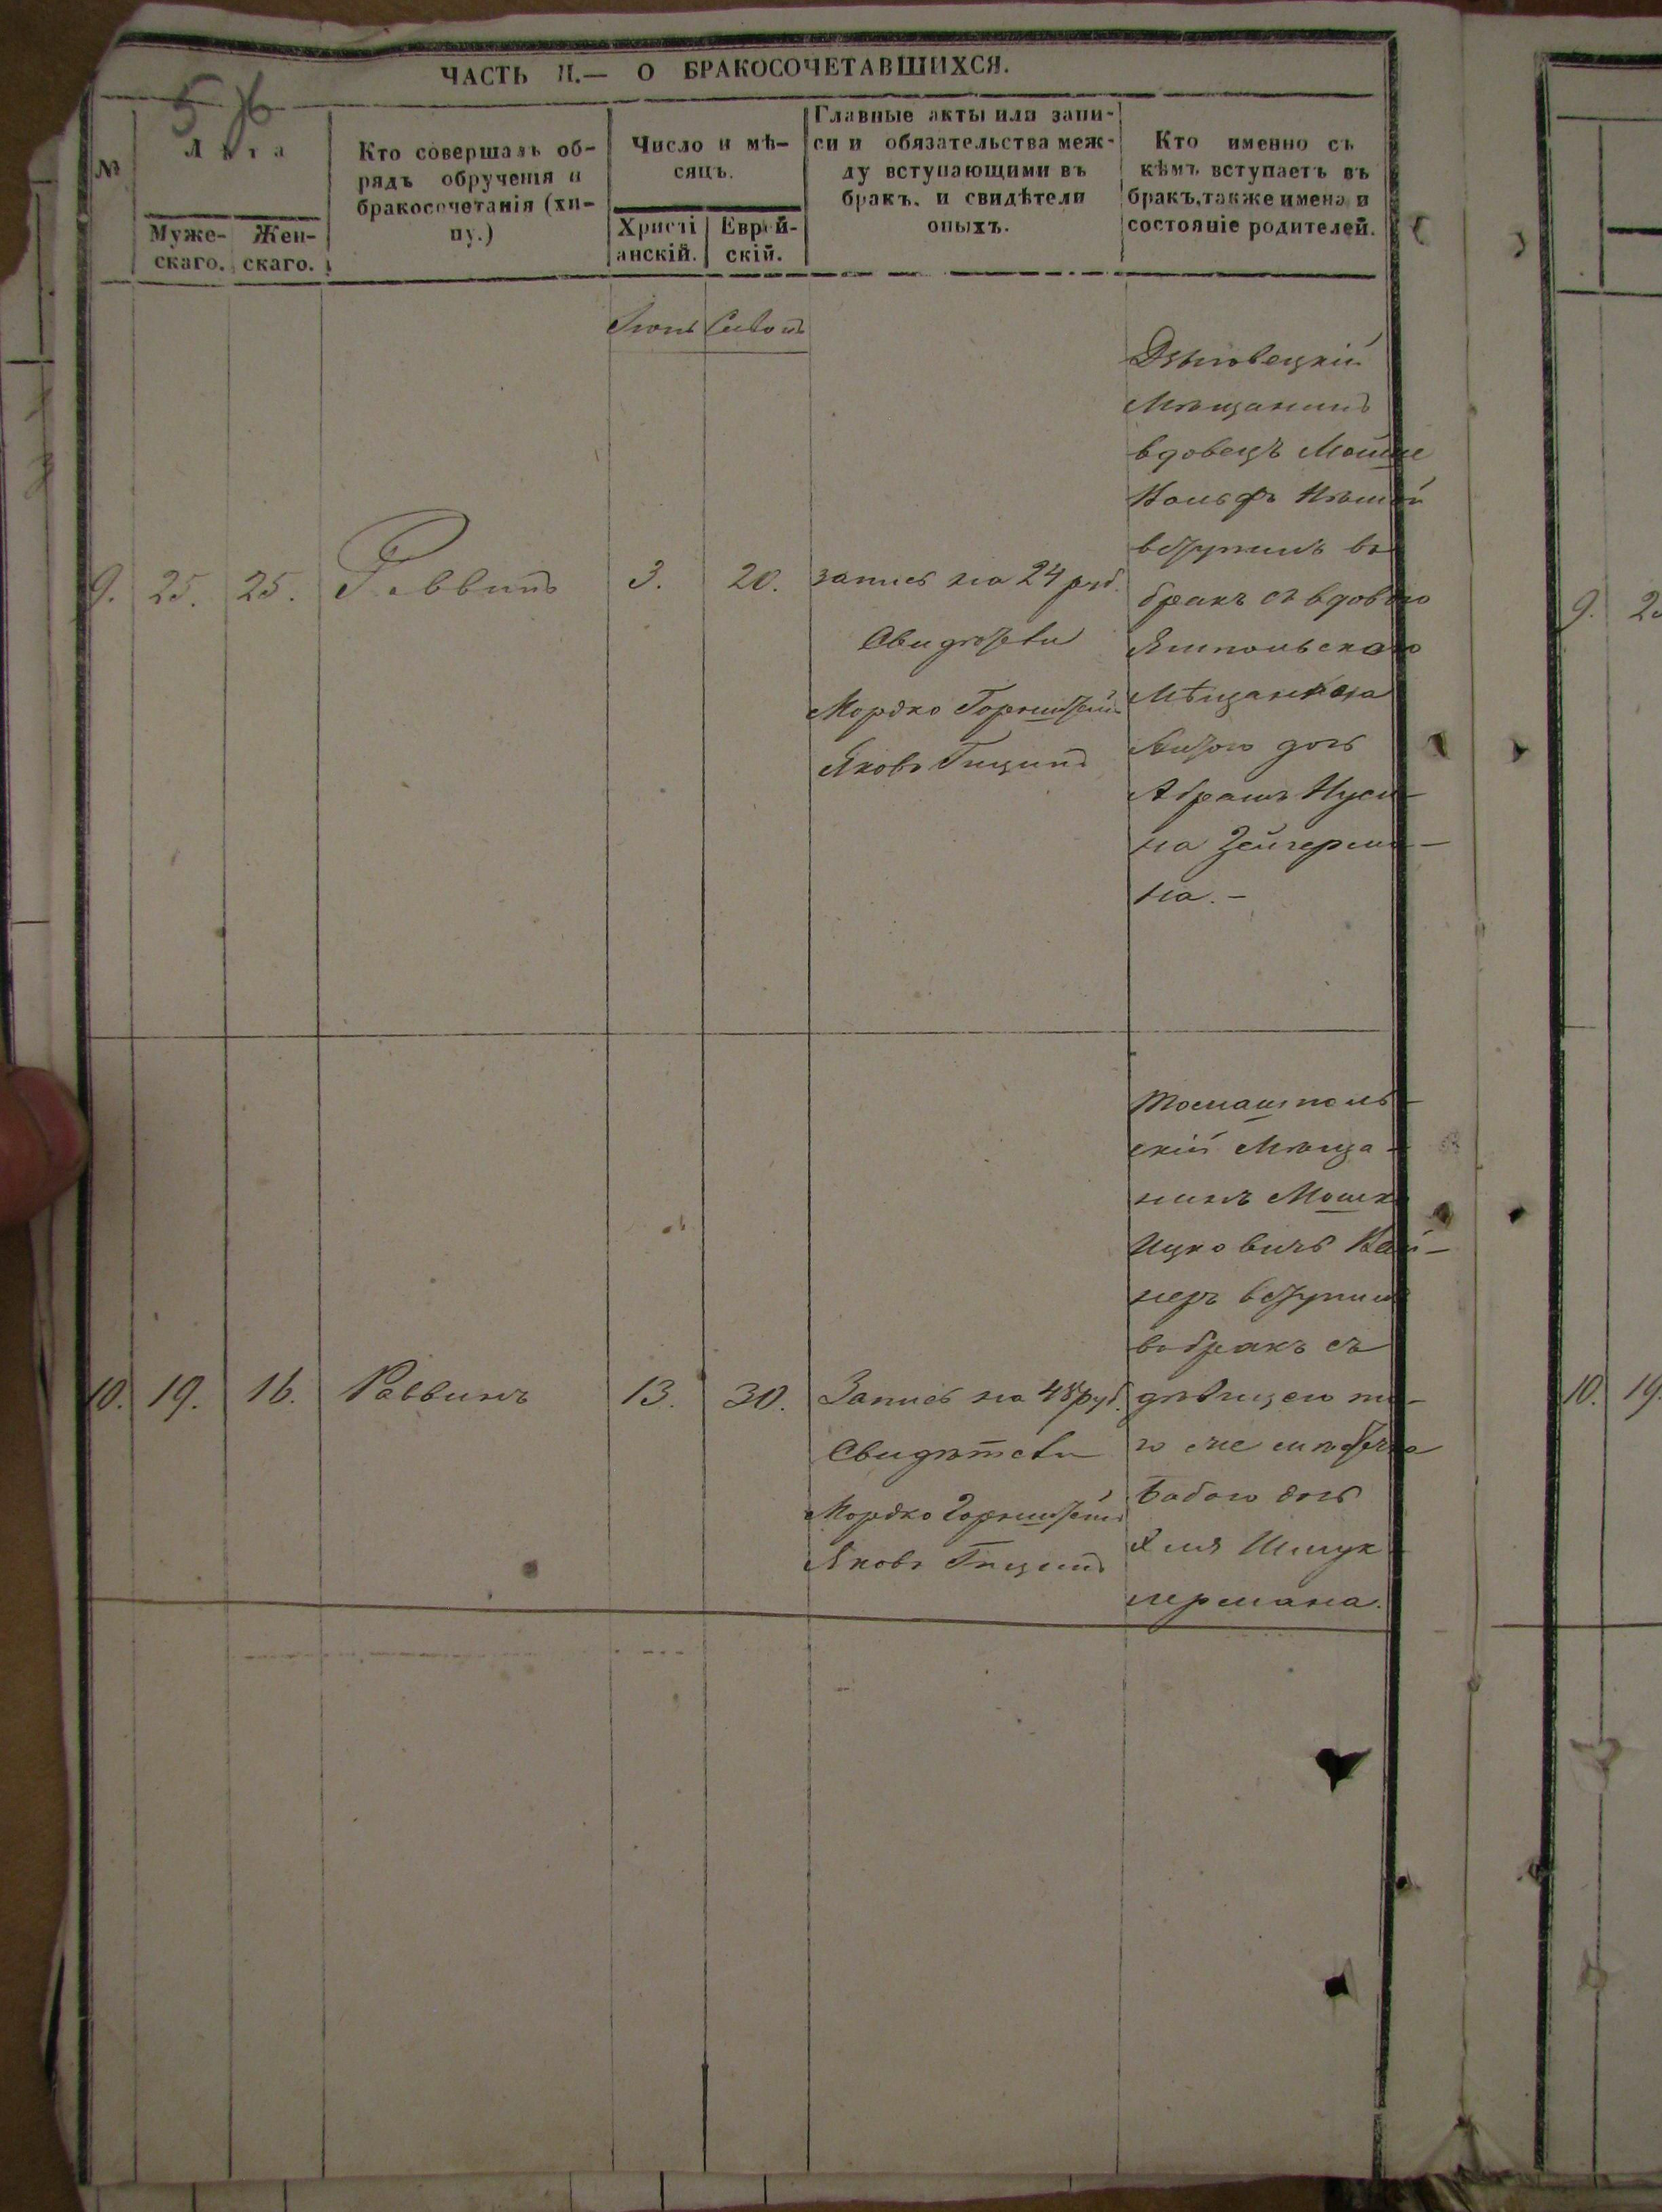 ЧАСТЬ II.— О БРАКОСОЧЕТАВШИХСЯ.
56
№
Лѣта
Муже-
скаго.
Жен-
скаго.
Кто совершалъ об-
рядъ обрученія и
бракосочетанія (хи-
пу.)
Число и мѣ-
сяцъ.
Христі
анскій.
Еврей-
скій.
Главные акты или запи-
си и обязательства меж-
ду вступающими въ
бракъ, и свидѣтели
оныхъ.
Кто именно съ
кѣмъ вступаетъ въ
бракъ, также имена и
состояніе родителей.
Іюнь Сивонъ
9. 25. 25. Раввинъ 3. 20.
запись на 24 руб.
Свидѣтели
Мордко Горнштейнъ
Яковъ
мѣщанинъ
вдовецъ Мошке
вступилъ въ
бракъ съ вдовою
Ямпольскаго
Мѣщанина
дочь
Абрамъ Нуси-
на Зейгерма-
на.-
10. 19. 16. Раввинъ 13. 30.
Запись на 48 руб.
Свидѣтели
Мордко Горнштейнъ
Яковъ
Томашполь-
скій Мѣща-
нинъ Мошко
Ицковичъ
неръ вступилъ
въ бракъ съ
дѣвицею то-
го же мѣстечка
Бабою дочь
Шмук
лермана.
9. 2
10. 19.